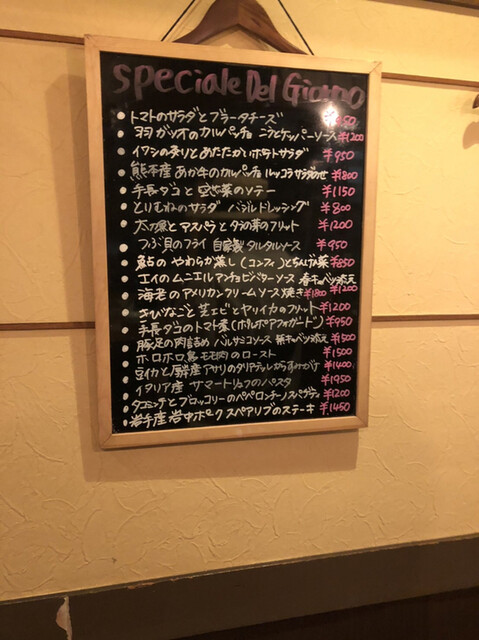 Speciale Del Giorno
• トマトのサラダとブラータチーズ
• 羽ガツオのカルパッチョ ニラとケッパーソース ¥1200
• イワシの炙りとあたたかいポテトサラダ ¥950
• 熊本産 あか牛のカルパッチョ ルッコラサラダのせ ¥1800
• 手長ダコと 菜のソテー ¥1150
• とりむねのサラダ バジルドレッシング ¥800
• 太刀魚と アスパラと タラの芽のフリット ¥1200
• つぶ貝のフライ 自家製タルタルソース ¥950
• 鮎の やわらか蒸し (コンフィ) ¥850
• エイのムニエル アンチョビバターソース 春キャベツ添え
• 海老のアメリカンクリームソース焼き ¥1800 ¥1200
• きびなごと 芝エビと ヤリイカのフリット ¥1200
• 手長ダコのトマト煮 (ポルポアフォガード) ¥950
• 豚足の肉詰め バルサミコソース キャベツ添え ¥1500
• ホロホロ鳥モモ肉のロースト ¥1500
• 豆イカと厚岸産アサリのタリアテッレ からすみがけ ¥1400
• イタリア産 サマートリュフのパスタ ¥1950
• タコミンチとブロッコリーのペペロンチーノスパゲティ ¥1200
• 岩手産岩中ポーク スペアリブのステーキ ¥1450